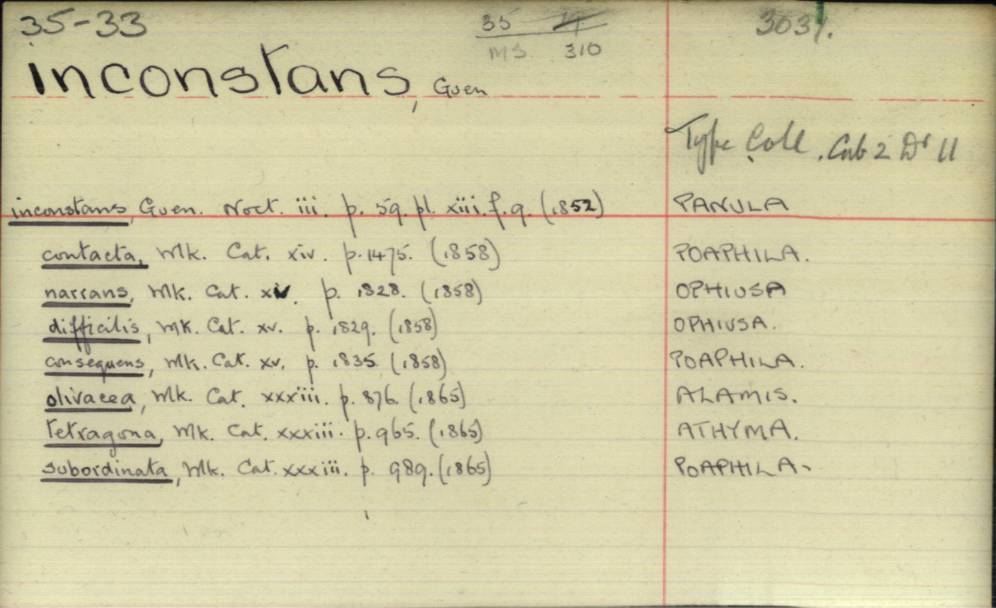 35-33
35
MS 310
303
inconstans, Guen
Type Coll. Cab 2 Dr 11
inconstans, Guen. Noct. iii. p. 59. pl. xiii. f. 9. (1852) PANULA
contacta, Wlk. Cat. xiv. p. 1475. (1858) POAPHILA.
narrans, Wlk. Cat. xiv. p. 1828. (1858) OPHIUSA
difficilis, Wlk. Cat. xv. p. 1829. (1858) OPHIUSA.
consequens, Wlk. Cat. xv. p. 1835. (1858) POAPHILA.
olivacea, Wlk. Cat. xxxiii. p. 876. (1865) ALAMIS.
tetragona, Wlk. Cat. xxxiii. p. 965. (1865) ATHYMA.
subordinata, Wlk. Cat. xxxiii. p. 989. (1865) POAPHILA.